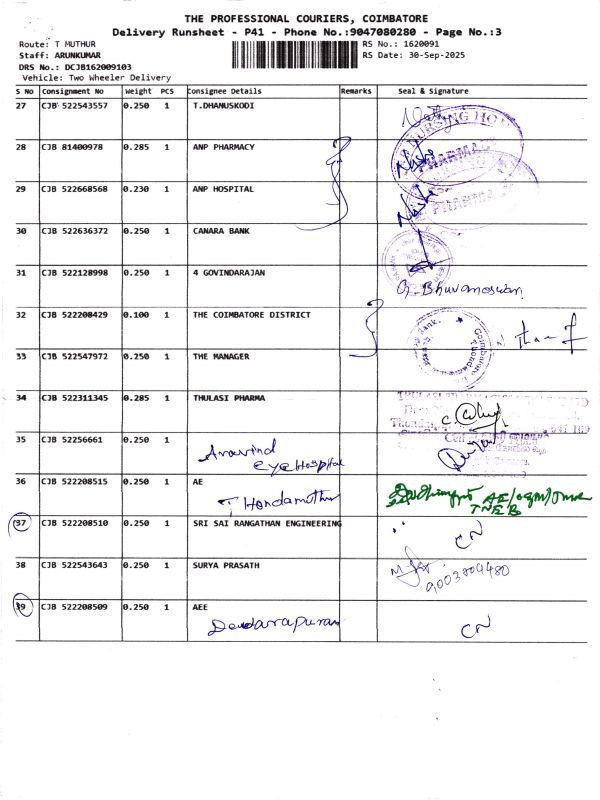 THE PROFESSIONAL COURIERS, COIMBATORE
Delivery Runsheet - P41 - Phone No.:9047080280 - Page No.:3
Route: T MUTHUR RS No.: 1620091
Staff: ARUNKUMAR RS Date: 30-Sep-2025
DRS No.: DCJB162009103
Vehicle: Two Wheeler Delivery
S No Consignment No Weight PCS Consignee Details Remarks Seal & Signature
27 CJB 522543557 0.250 1 T.DHANUSKODI
NURSING HO
28 CJB 81400978 0.285 1 ANP PHARMACY
PHARMACY
29 CJB 522668568 0.230 1 ANP HOSPITAL
PHARMA
30 CJB 522636372 0.250 1 CANARA BANK
31 CJB 522128998 0.250 1 4 GOVINDARAJAN
G. Bhuvaneswari
32 CJB 522208429 0.100 1 THE COIMBATORE DISTRICT
33 CJB 522547972 0.250 1 THE MANAGER
34 CJB 522311345 0.285 1 THULASI PHARMA
35 CJB 52256661 0.250 1
Aravind
eye Hospital
36 CJB 522208515 0.250 1 AE
T Hondamuthur
AE/O&M/
TNEB
37 CJB 522208510 0.250 1 SRI SAI RANGATHAN ENGINEERING
CN
38 CJB 522543643 0.250 1 SURYA PRASATH
9003809480
39 CJB 522208509 0.250 1 AEE
Devdarapuram
CN